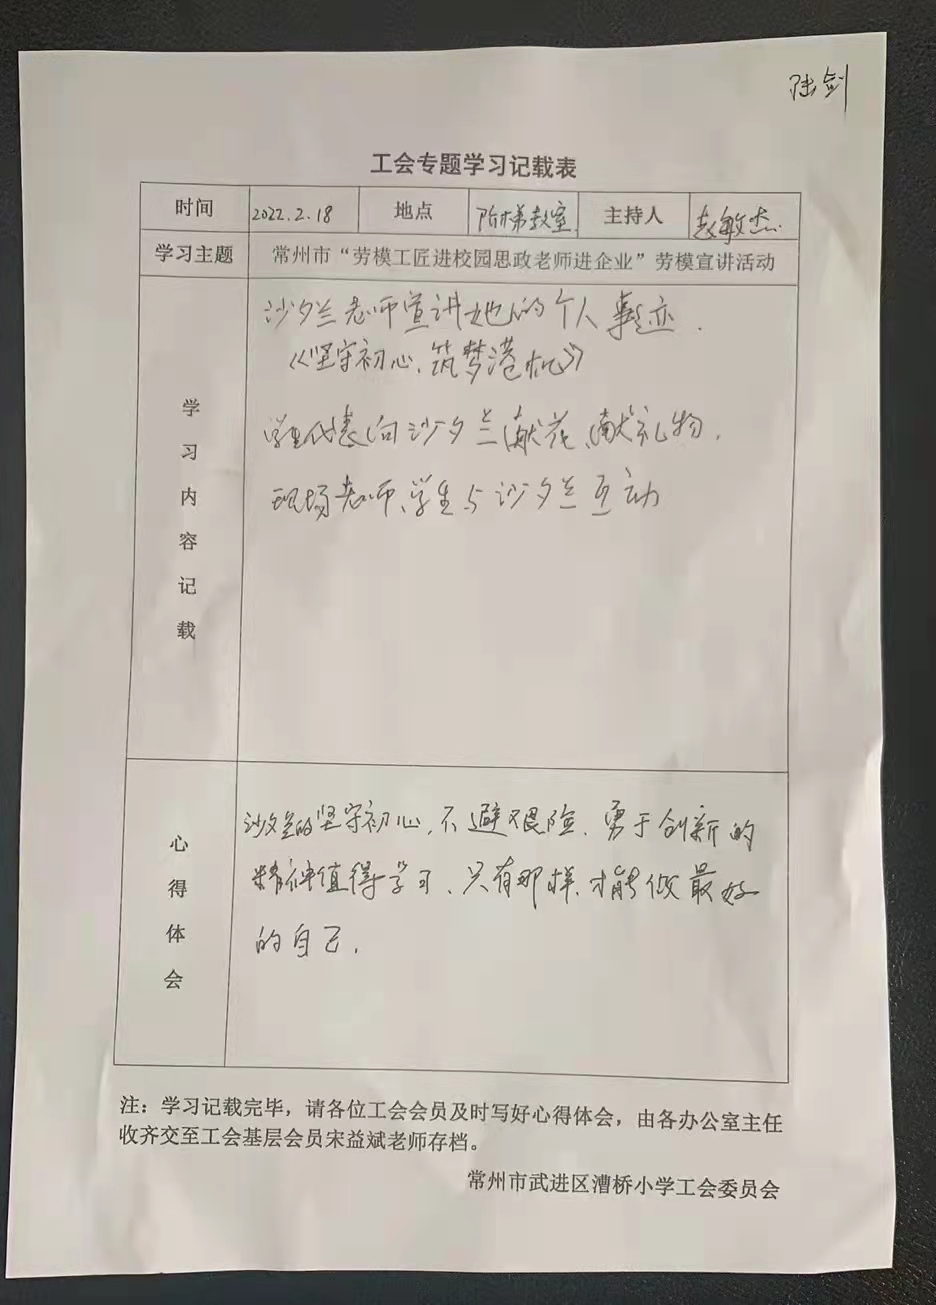 陆剑
工会专题学习记载表
时间 2022.2.18 地点 阶梯教室 主持人 赵敏杰
学习主题 常州市“劳模工匠进校园思政老师进企业”劳模宣讲活动
学习内容记载
沙夕兰老师宣讲她的个人事迹.
《坚守初心,筑梦港机》
学生代表向沙夕兰献花、献礼物.
现场老师、学生与沙夕兰互动
心得体会
沙夕兰的坚守初心,不避艰险、勇于创新的
精神值得学习、只有那样、才能做最好
的自己.
注：学习记载完毕，请各位工会会员及时写好心得体会，由各办公室主任
收齐交至工会基层会员宋益斌老师存档。
常州市武进区漕桥小学工会委员会